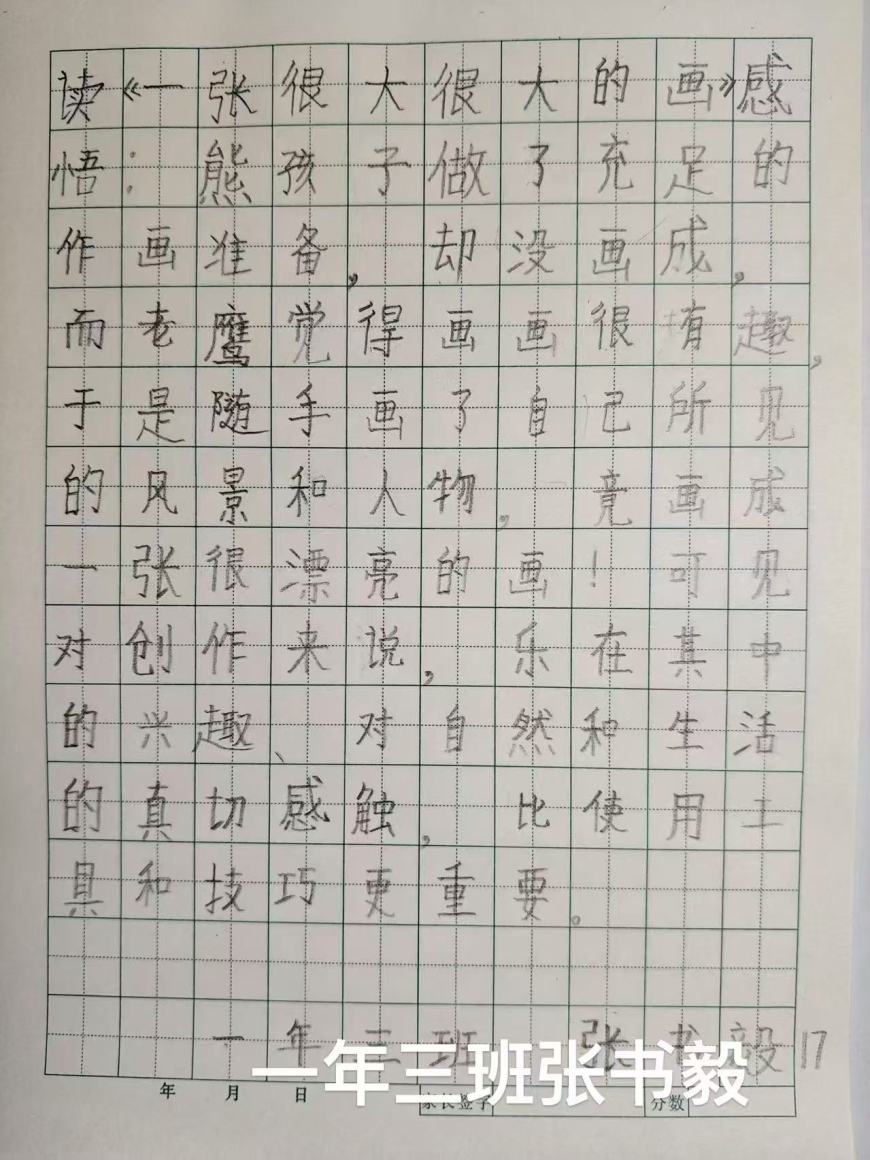 读《一张很大很大的画》感
悟：熊孩子做了充足的
作画准备，却没画成，
而老鹰觉得画画很有趣，
于是随手画了自己所见
的风景和人物，竟画成
一张很漂亮的画！可见
对创作来说，乐在其中
的兴趣、对自然和生活
的真切感触，比使用工
具和技巧更重要。
一年三班 张书毅 17
一年三班张书毅
年 月 日 家长签字 分数